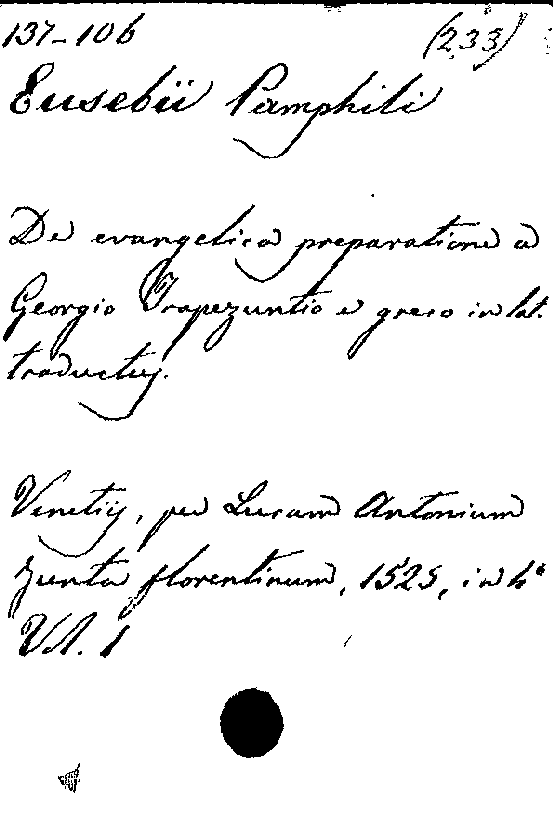 137-106 (233)
Eusebii Pamphili
De evangelica preparatione a
Georgio Trapezuntio e greco in lat.
traductus.
Venetijs, per Lucam Antonium
Zunta florentinum, 1525, in 4°
Vol. 1